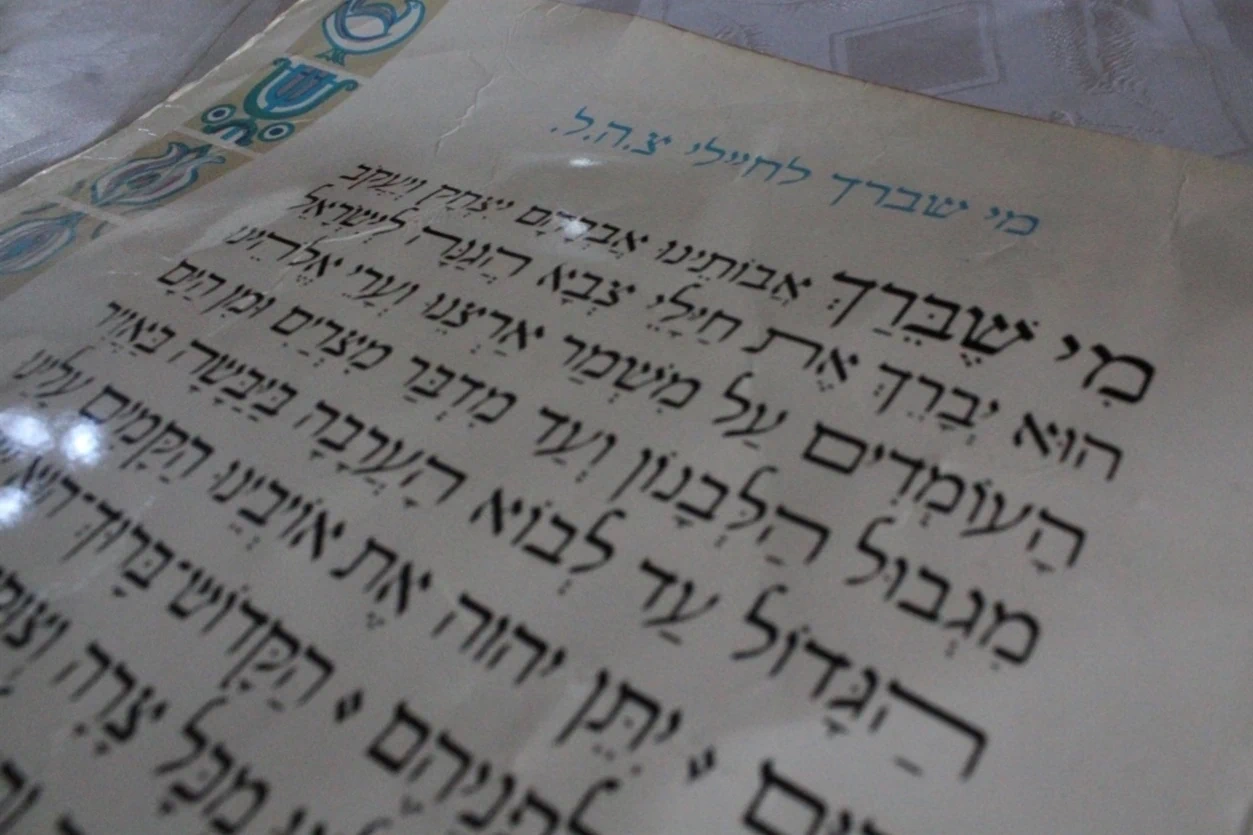 מי שברך לחיילי צ.ה.ל.
מִי שֶׁבֵּרַךְ אֲבוֹתֵינוּ אַבְרָהָם יִצְחָק וְיַעֲקֹב
הוּא יְבָרֵךְ אֶת חַיָּלֵי צְבָא הֲגַנָּה לְיִשְׂרָאֵל
הָעוֹמְדִים עַל מִשְׁמַר אַרְצֵנוּ וְעָרֵי אֱלֹהֵינוּ
מִגְּבוּל הַלְּבָנוֹן וְעַד מִדְבַּר מִצְרַיִם וּמִן הַיָּם
הַגָּדוֹל עַד לְבוֹא הָעֲרָבָה בַּיַּבָּשָׁה בָּאֲוִיר
יִתֵּן יהוה אֶת אוֹיְבֵינוּ הַקָּמִים עָלֵינוּ
לִפְנֵיהֶם הַקָּדוֹשׁ־בָּרוּךְ־הוּא
מִכָּל צָרָה